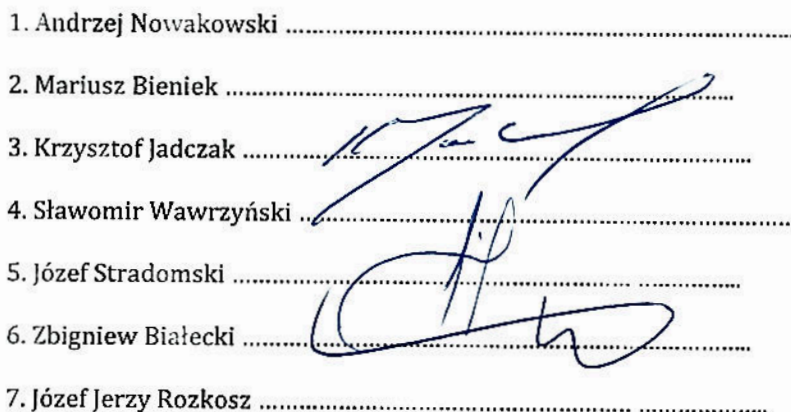 1. Andrzej Nowakowski ........................................................
2. Mariusz Bieniek ........................................................
3. Krzysztof Jadczak ........................................................
4. Sławomir Wawrzyński ........................................................
5. Józef Stradomski ........................................................
6. Zbigniew Białecki ........................................................
7. Józef Jerzy Rozkosz ........................................................